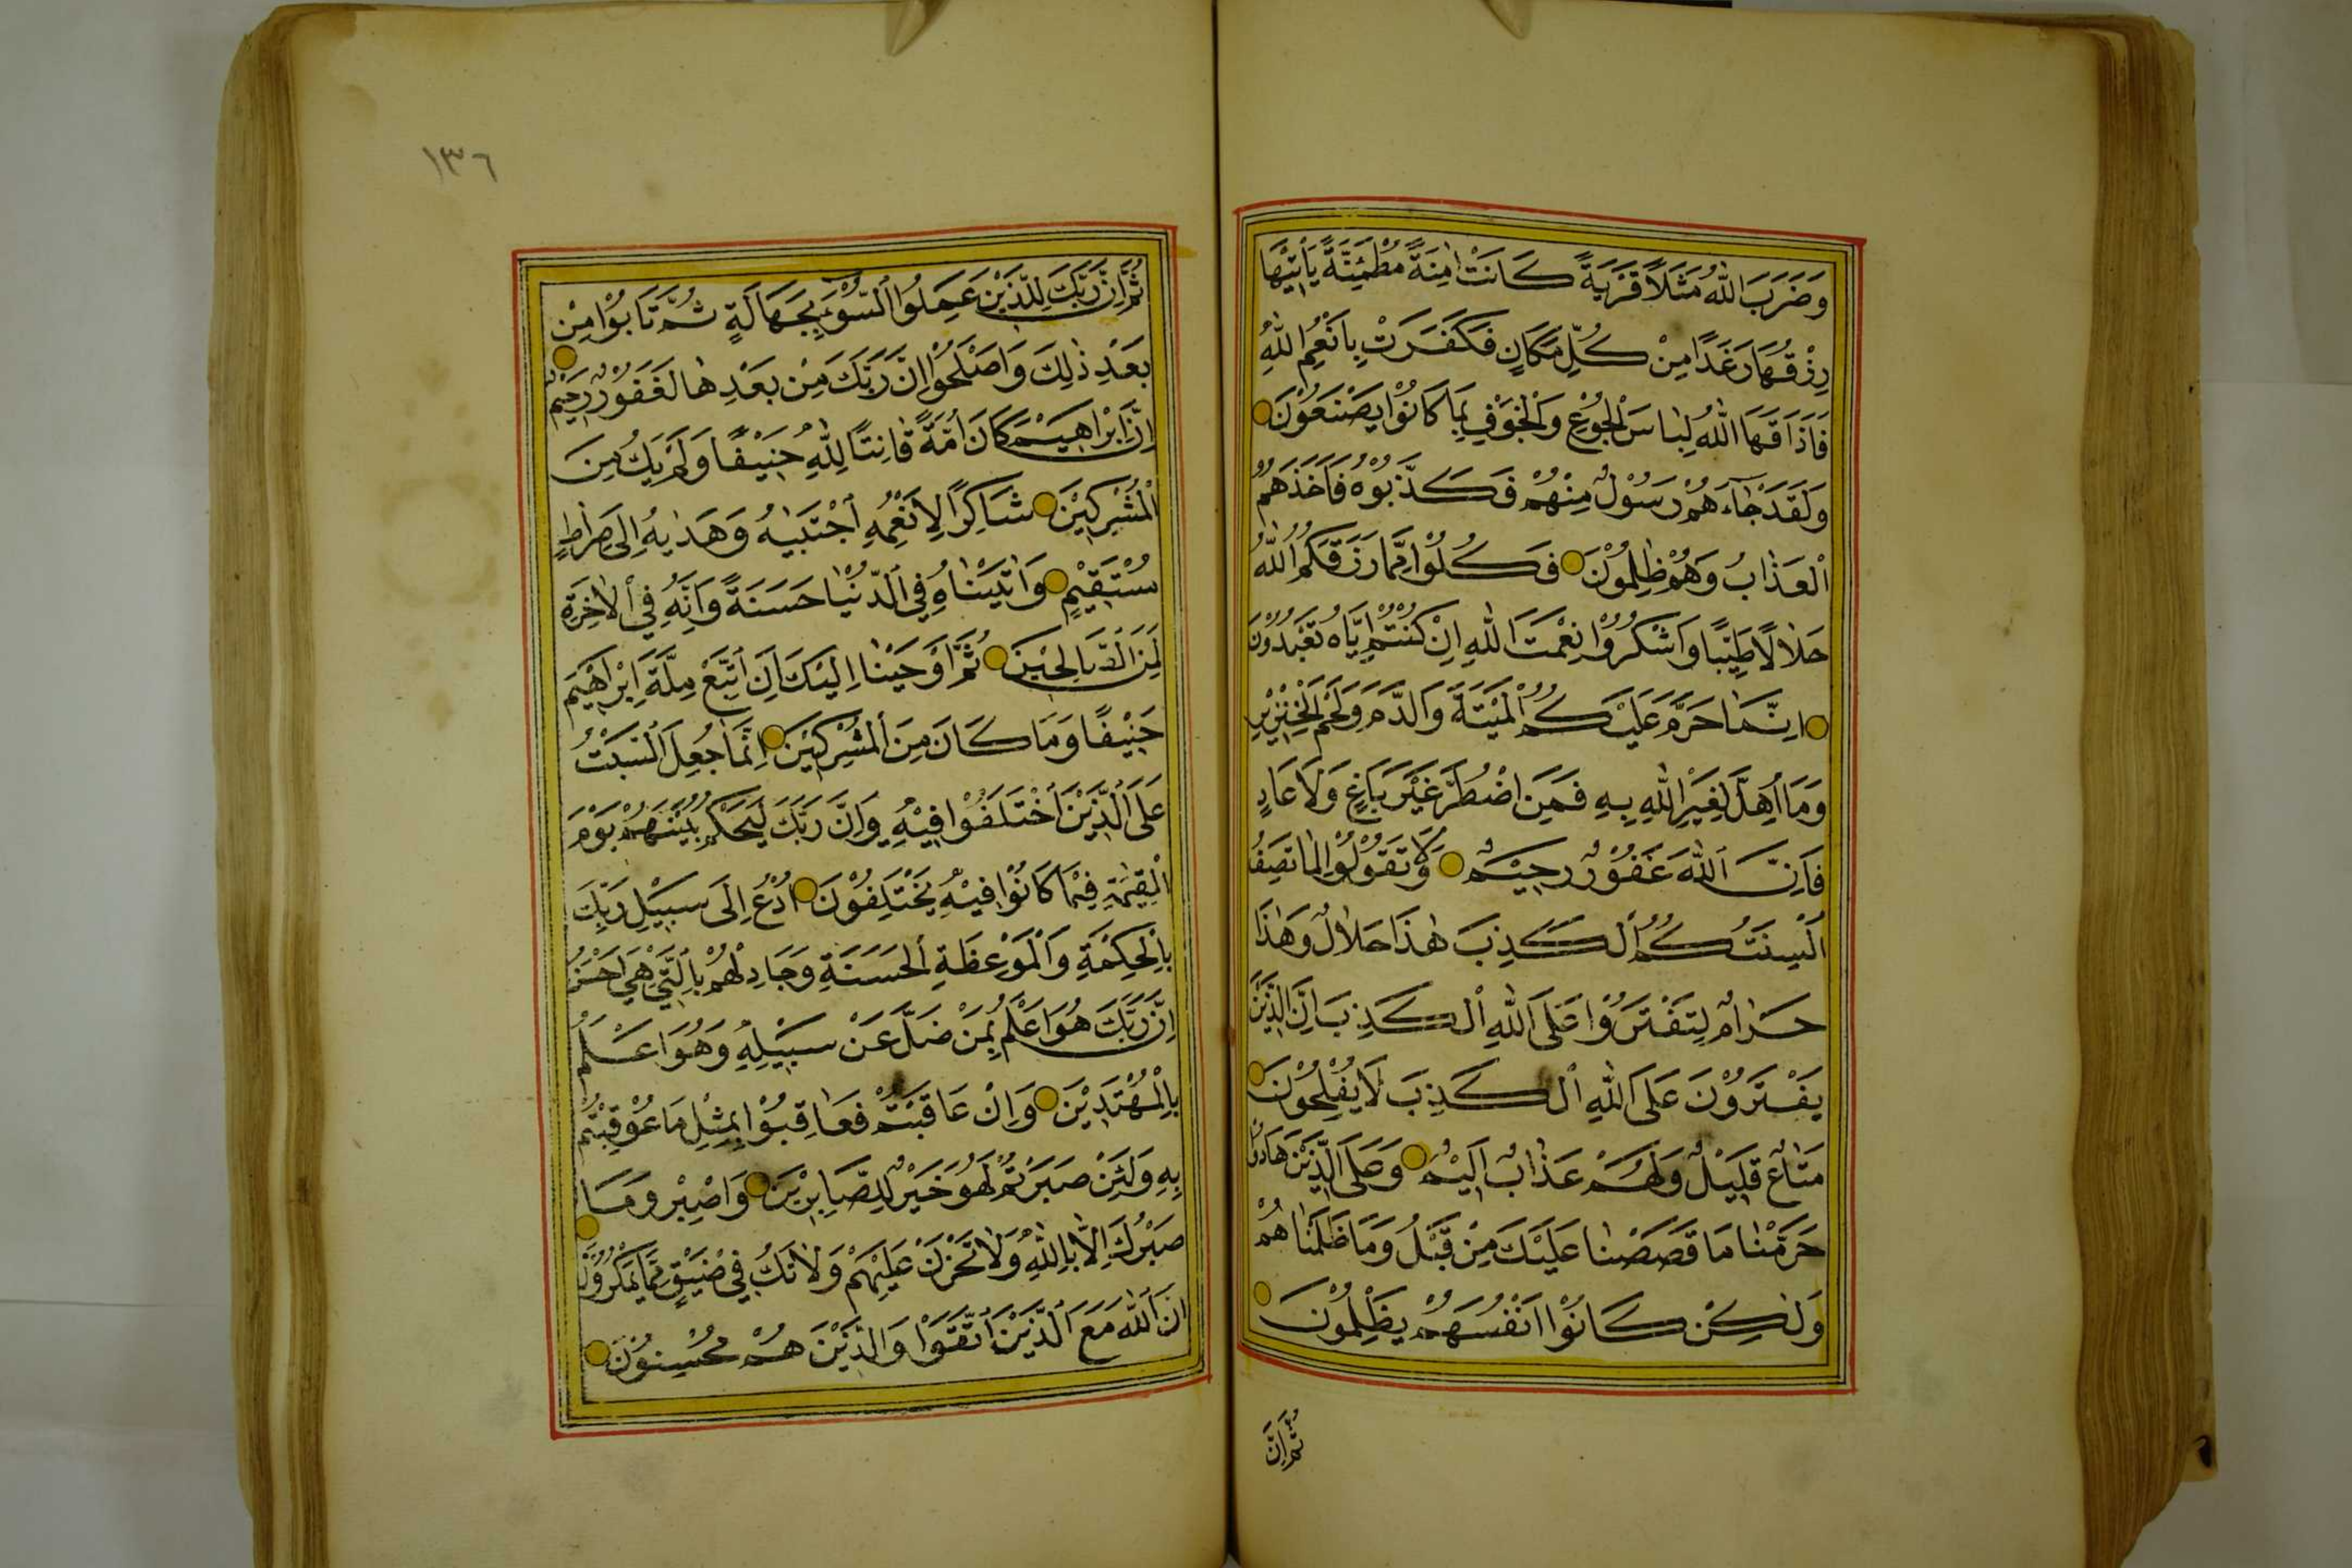 وَضَرَبَ اللّٰهُ مَثَلًا قَرْيَةً كَانَتْ اٰمِنَةً مُطْمَئِنَّةً يَأْتِيْهَا
رِزْقُهَا رَغَدًا مِنْ كُلِّ مَكَانٍ فَكَفَرَتْ بِاَنْعُمِ اللّٰهِ
فَاَذَاقَهَا اللّٰهُ لِبَاسَ الْجُوْعِ وَالْخَوْفِ بِمَا كَانُوْا يَصْنَعُوْنَ
وَلَقَدْ جَآءَهُمْ رَسُوْلٌ مِنْهُمْ فَكَذَّبُوْهُ فَاَخَذَهُمُ
الْعَذَابُ وَهُمْ ظَالِمُوْنَ فَكُلُوْا مِمَّا رَزَقَكُمُ اللّٰهُ
حَلَالًا طَيِّبًا وَاشْكُرُوْا نِعْمَتَ اللّٰهِ اِنْ كُنْتُمْ اِيَّاهُ تَعْبُدُوْنَ
اِنَّمَا حَرَّمَ عَلَيْكُمُ الْمَيْتَةَ وَالدَّمَ وَلَحْمَ الْخِنْزِيْرِ
وَمَا اُهِلَّ لِغَيْرِ اللّٰهِ بِهِ فَمَنِ اضْطُرَّ غَيْرَ بَاغٍ وَلَا عَادٍ
فَاِنَّ اللّٰهَ غَفُوْرٌ رَحِيْمٌ وَلَا تَقُوْلُوْا لِمَا تَصِفُ
اَلْسِنَتُكُمُ الْكَذِبَ هٰذَا حَلَالٌ وَهٰذَا
حَرَامٌ لِتَفْتَرُوْا عَلَى اللّٰهِ الْكَذِبَ اِنَّ الَّذِيْنَ
يَفْتَرُوْنَ عَلَى اللّٰهِ الْكَذِبَ لَا يُفْلِحُوْنَ
مَتَاعٌ قَلِيْلٌ وَلَهُمْ عَذَابٌ اَلِيْمٌ وَعَلَى الَّذِيْنَ هَادُوْا
حَرَّمْنَا مَا قَصَصْنَا عَلَيْكَ مِنْ قَبْلُ وَمَا ظَلَمْنَاهُمْ
وَلٰكِنْ كَانُوْا اَنْفُسَهُمْ يَظْلِمُوْنَ
ثُمَّ اِنَّ
١٣٦
ثُمَّ اِنَّ رَبَّكَ لِلَّذِيْنَ عَمِلُوا السُّوْءَ بِجَهَالَةٍ ثُمَّ تَابُوْا مِنْ
بَعْدِ ذٰلِكَ وَاَصْلَحُوْا اِنَّ رَبَّكَ مِنْ بَعْدِهَا لَغَفُوْرٌ رَحِيْمٌ
اِنَّ اِبْرَاهِيْمَ كَانَ اُمَّةً قَانِتًا لِلّٰهِ حَنِيْفًا وَلَمْ يَكُ مِنَ
الْمُشْرِكِيْنَ شَاكِرًا لِاَنْعُمِهِ اجْتَبٰيهُ وَهَدٰيهُ اِلٰى صِرَاطٍ
مُسْتَقِيْمٍ وَاٰتَيْنَاهُ فِي الدُّنْيَا حَسَنَةً وَاِنَّهُ فِي الْاٰخِرَةِ
لَمِنَ الصَّالِحِيْنَ ثُمَّ اَوْحَيْنَا اِلَيْكَ اَنِ اتَّبِعْ مِلَّةَ اِبْرَاهِيْمَ
حَنِيْفًا وَمَا كَانَ مِنَ الْمُشْرِكِيْنَ اِنَّمَا جُعِلَ السَّبْتُ
عَلَى الَّذِيْنَ اخْتَلَفُوْا فِيْهِ وَاِنَّ رَبَّكَ لَيَحْكُمُ بَيْنَهُمْ يَوْمَ
الْقِيٰمَةِ فِيْمَا كَانُوْا فِيْهِ يَخْتَلِفُوْنَ اُدْعُ اِلٰى سَبِيْلِ رَبِّكَ
بِالْحِكْمَةِ وَالْمَوْعِظَةِ الْحَسَنَةِ وَجَادِلْهُمْ بِالَّتِيْ هِيَ اَحْسَنُ
اِنَّ رَبَّكَ هُوَ اَعْلَمُ بِمَنْ ضَلَّ عَنْ سَبِيْلِهِ وَهُوَ اَعْلَمُ
بِالْمُهْتَدِيْنَ وَاِنْ عَاقَبْتُمْ فَعَاقِبُوْا بِمِثْلِ مَا عُوْقِبْتُمْ
بِهِ وَلَئِنْ صَبَرْتُمْ لَهُوَ خَيْرٌ لِلصَّابِرِيْنَ وَاصْبِرْ وَمَا
صَبْرُكَ اِلَّا بِاللّٰهِ وَلَا تَحْزَنْ عَلَيْهِمْ وَلَا تَكُ فِيْ ضَيْقٍ مِمَّا يَمْكُرُوْنَ
اِنَّ اللّٰهَ مَعَ الَّذِيْنَ اتَّقَوْا وَالَّذِيْنَ هُمْ مُحْسِنُوْنَ